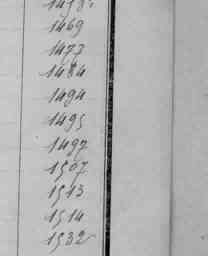 1469
1477
1484
1494
1495
1497
1507
1513
1514
1532